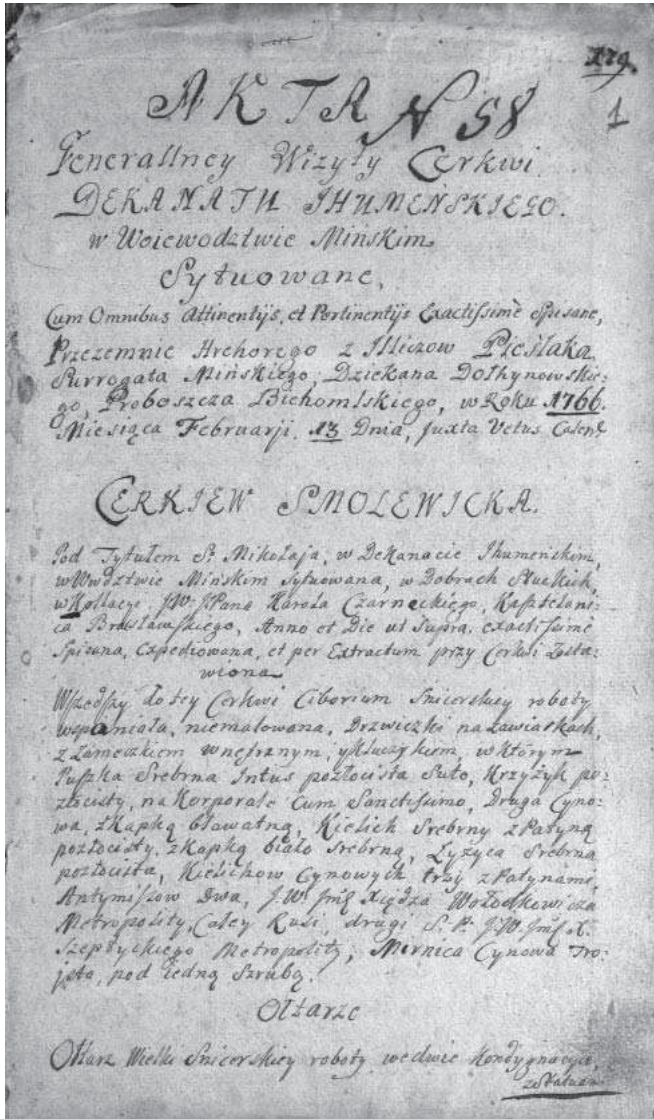 179.
1
AKTA N 58
Generallney Wizyty Cerkwi
DEKANATU IHUMEŃSKIEGO.
w Woiewodztwie Mińskim
Sytuowane,
Cum Omnibus Attinentijs, et Pertinentijs Exactissimè Spisane,
Przezemnie Hrehorego z Iliczow Pieślaka
Surrogata Mińskiego, Dziekana Dołhynowskie-
go, Proboszcza Bichomlskiego, w Roku 1766.
Miesiąca Februarji. 13 Dnia, juxta Vetus Calend
CERKIEW SMOLEWICKA.
Pod Tytułem S. Mikołaja, w Dekanacie Ihumeńskim,
w Wwdztwie Mińskim Sytuowana, w Dobrach Słuckich,
w Kollacyi J.W. JPana Karola Czarneckiego, Kasztelani-
ca Bracławskiego, Anno et Die ut Supra. exactissimè
Spisana, Expediowana, et per Extractum przy Cerkwi Zosta-
wiona
Wszedszy do tey Cerkwi Ciborium Snicerskiey roboty
wspaniała, niemalowana, Drzwiczki na Zawiaskach,
z Zameczkiem wnętrznym, y kluczykiem, w którym
Puszka Srebrna Intus pozłocista Suto, Krzyżyk po-
złocisty, na Korporale Cum Sanctissimo, Druga Cyno-
wa, z Kapką bławatną, Kielich Srebrny z Patyną
pozłocisty, z Kapką biało Srebrną, Łyżyca Srebrna
pozłocista, Kielichow Cynowych trzy z Patynami,
Antymissow Dwa, J.W. Jmę Xiędza Wołodkowicza
Metropolity Całey Rusi, drugi S. P. J.W. Jmę X.
Szeptyckiego Metropolity, Mirnica Cynowa Tro-
jsta, pod iedną Szrubą.
Ołtarze
Ołtarz Wielki Snicerskiey roboty we dwie Kondygnacye,
ze Statuam